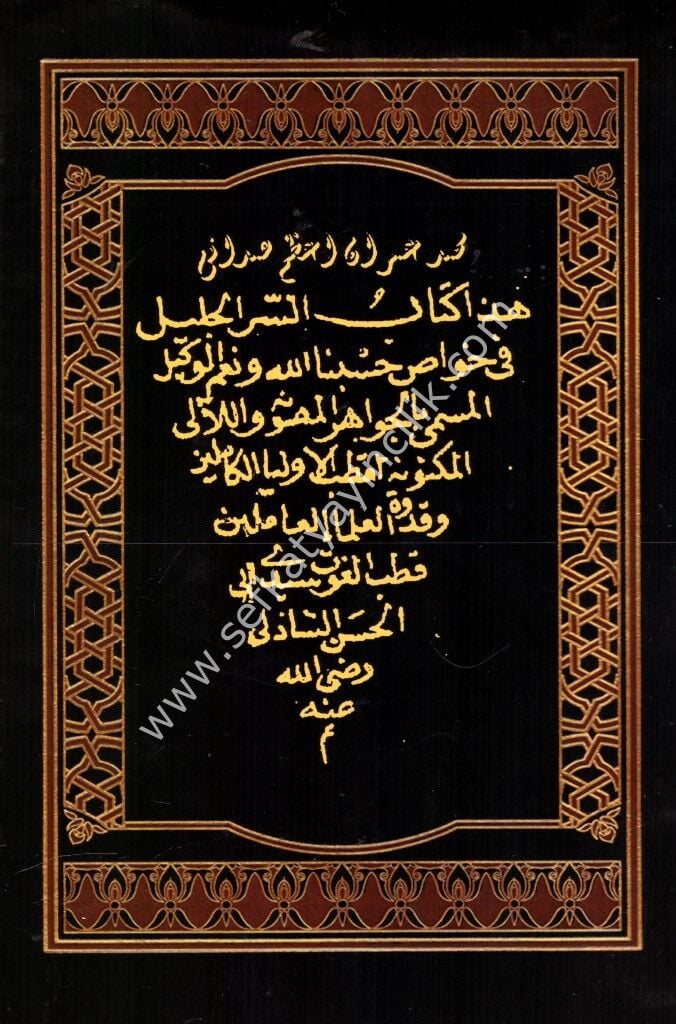 هذا كتاب السر الجليل
في خواص حسبنا الله ونعم الوكيل
المسمى بالجواهر المصونة واللآلى
المكنونة لقطب الاوليا الكاملين
وقدوة العلما العاملين
قطب الغوث سيدي ابي
الحسن الشاذلى
رضى الله
عنه
م
www.serhatyayincilik.com